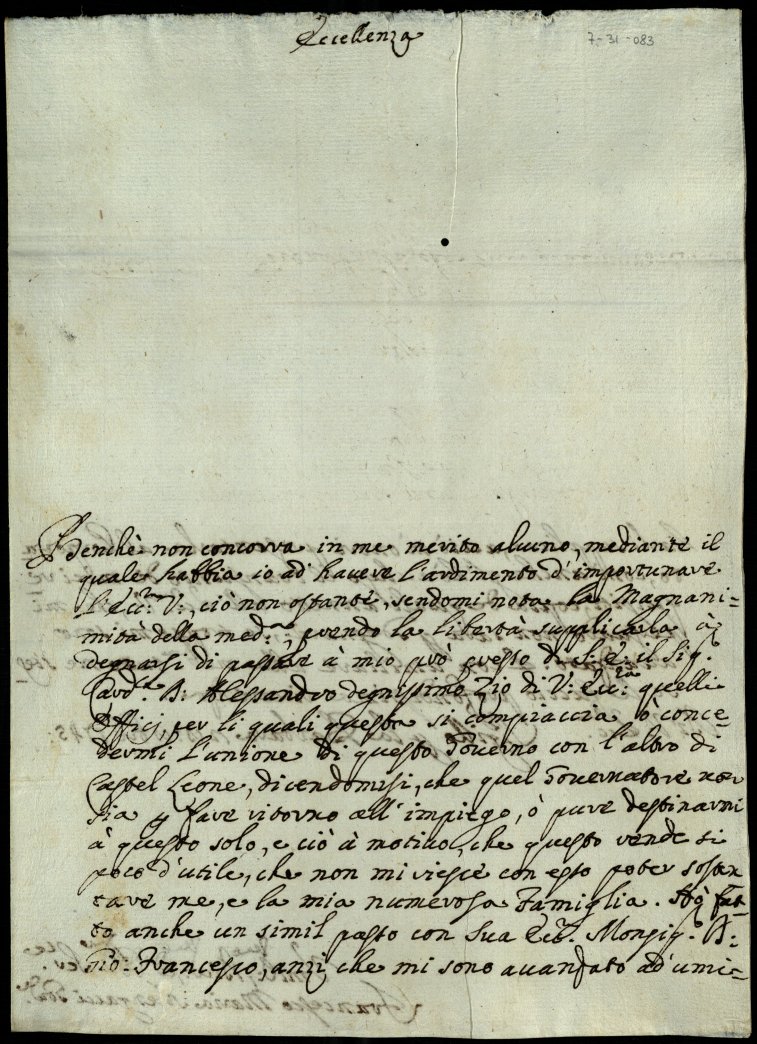 Eccellenza
7-31-083
Benchè non concorra in me merito alcuno, mediante il
quale habbia io ad' havere l'ardimento d'importunare
l'Ecc:za V:, ciò non ostante, sendomi nota la Magnani=
mità della med:ma, prendo la libertà supplicarla à
degnarsi di passare à mio prò presso di S: E: il Sig.r
Card.le B: Alessandro degnissimo Zio di V: Ecc:za quelli
Officj, per li quali questa si compiaccia ò conce=
dermi l'unione di questo Governo con l'altro di
Castel Leone, dicendomisi, che quel Governatore non
sia p fare ritorno all'impiego, ò pure destinarmi
à questo solo, e ciò à motivo, che questo rende si
poco d'utile, che non mi riesce con esso poter susten
tare me, e la mia numerosa Famiglia. Hò fat=
to anche un simil passo con Sua Ecc.za Monsig.r B:
Gio: Francesco, anzi che mi sono avanzato ad' umi=
Francesco Maria